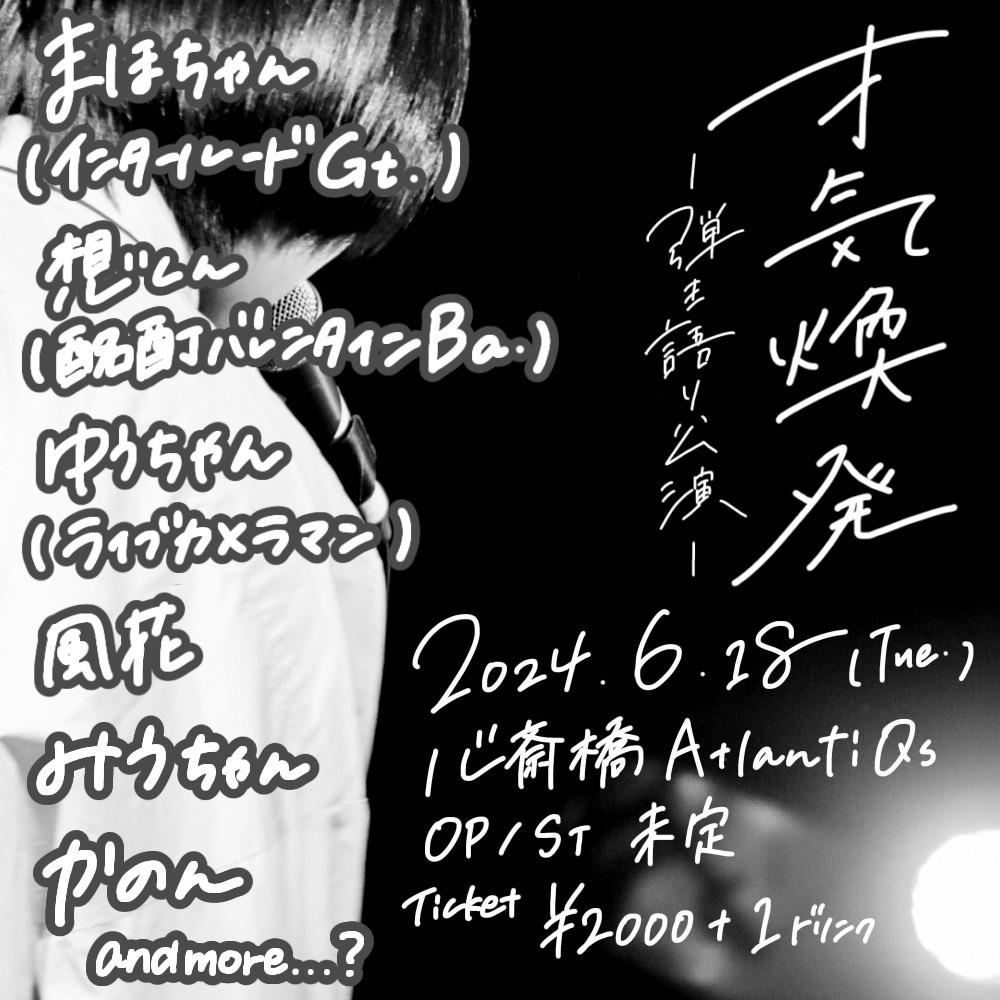 才気煥発
-弾き語り公演-
まほちゃん
(インタールードGt.)
想じしん
(酩酊バレンタインBa.)
ゆうちゃん
(ライブカメラマン)
風花
みうちゃん
かのん
and more...?
2024.6.18(Tue.)
心斎橋 AtlantiQs
OP/ST 未定
Ticket ¥2000+1ドリンク